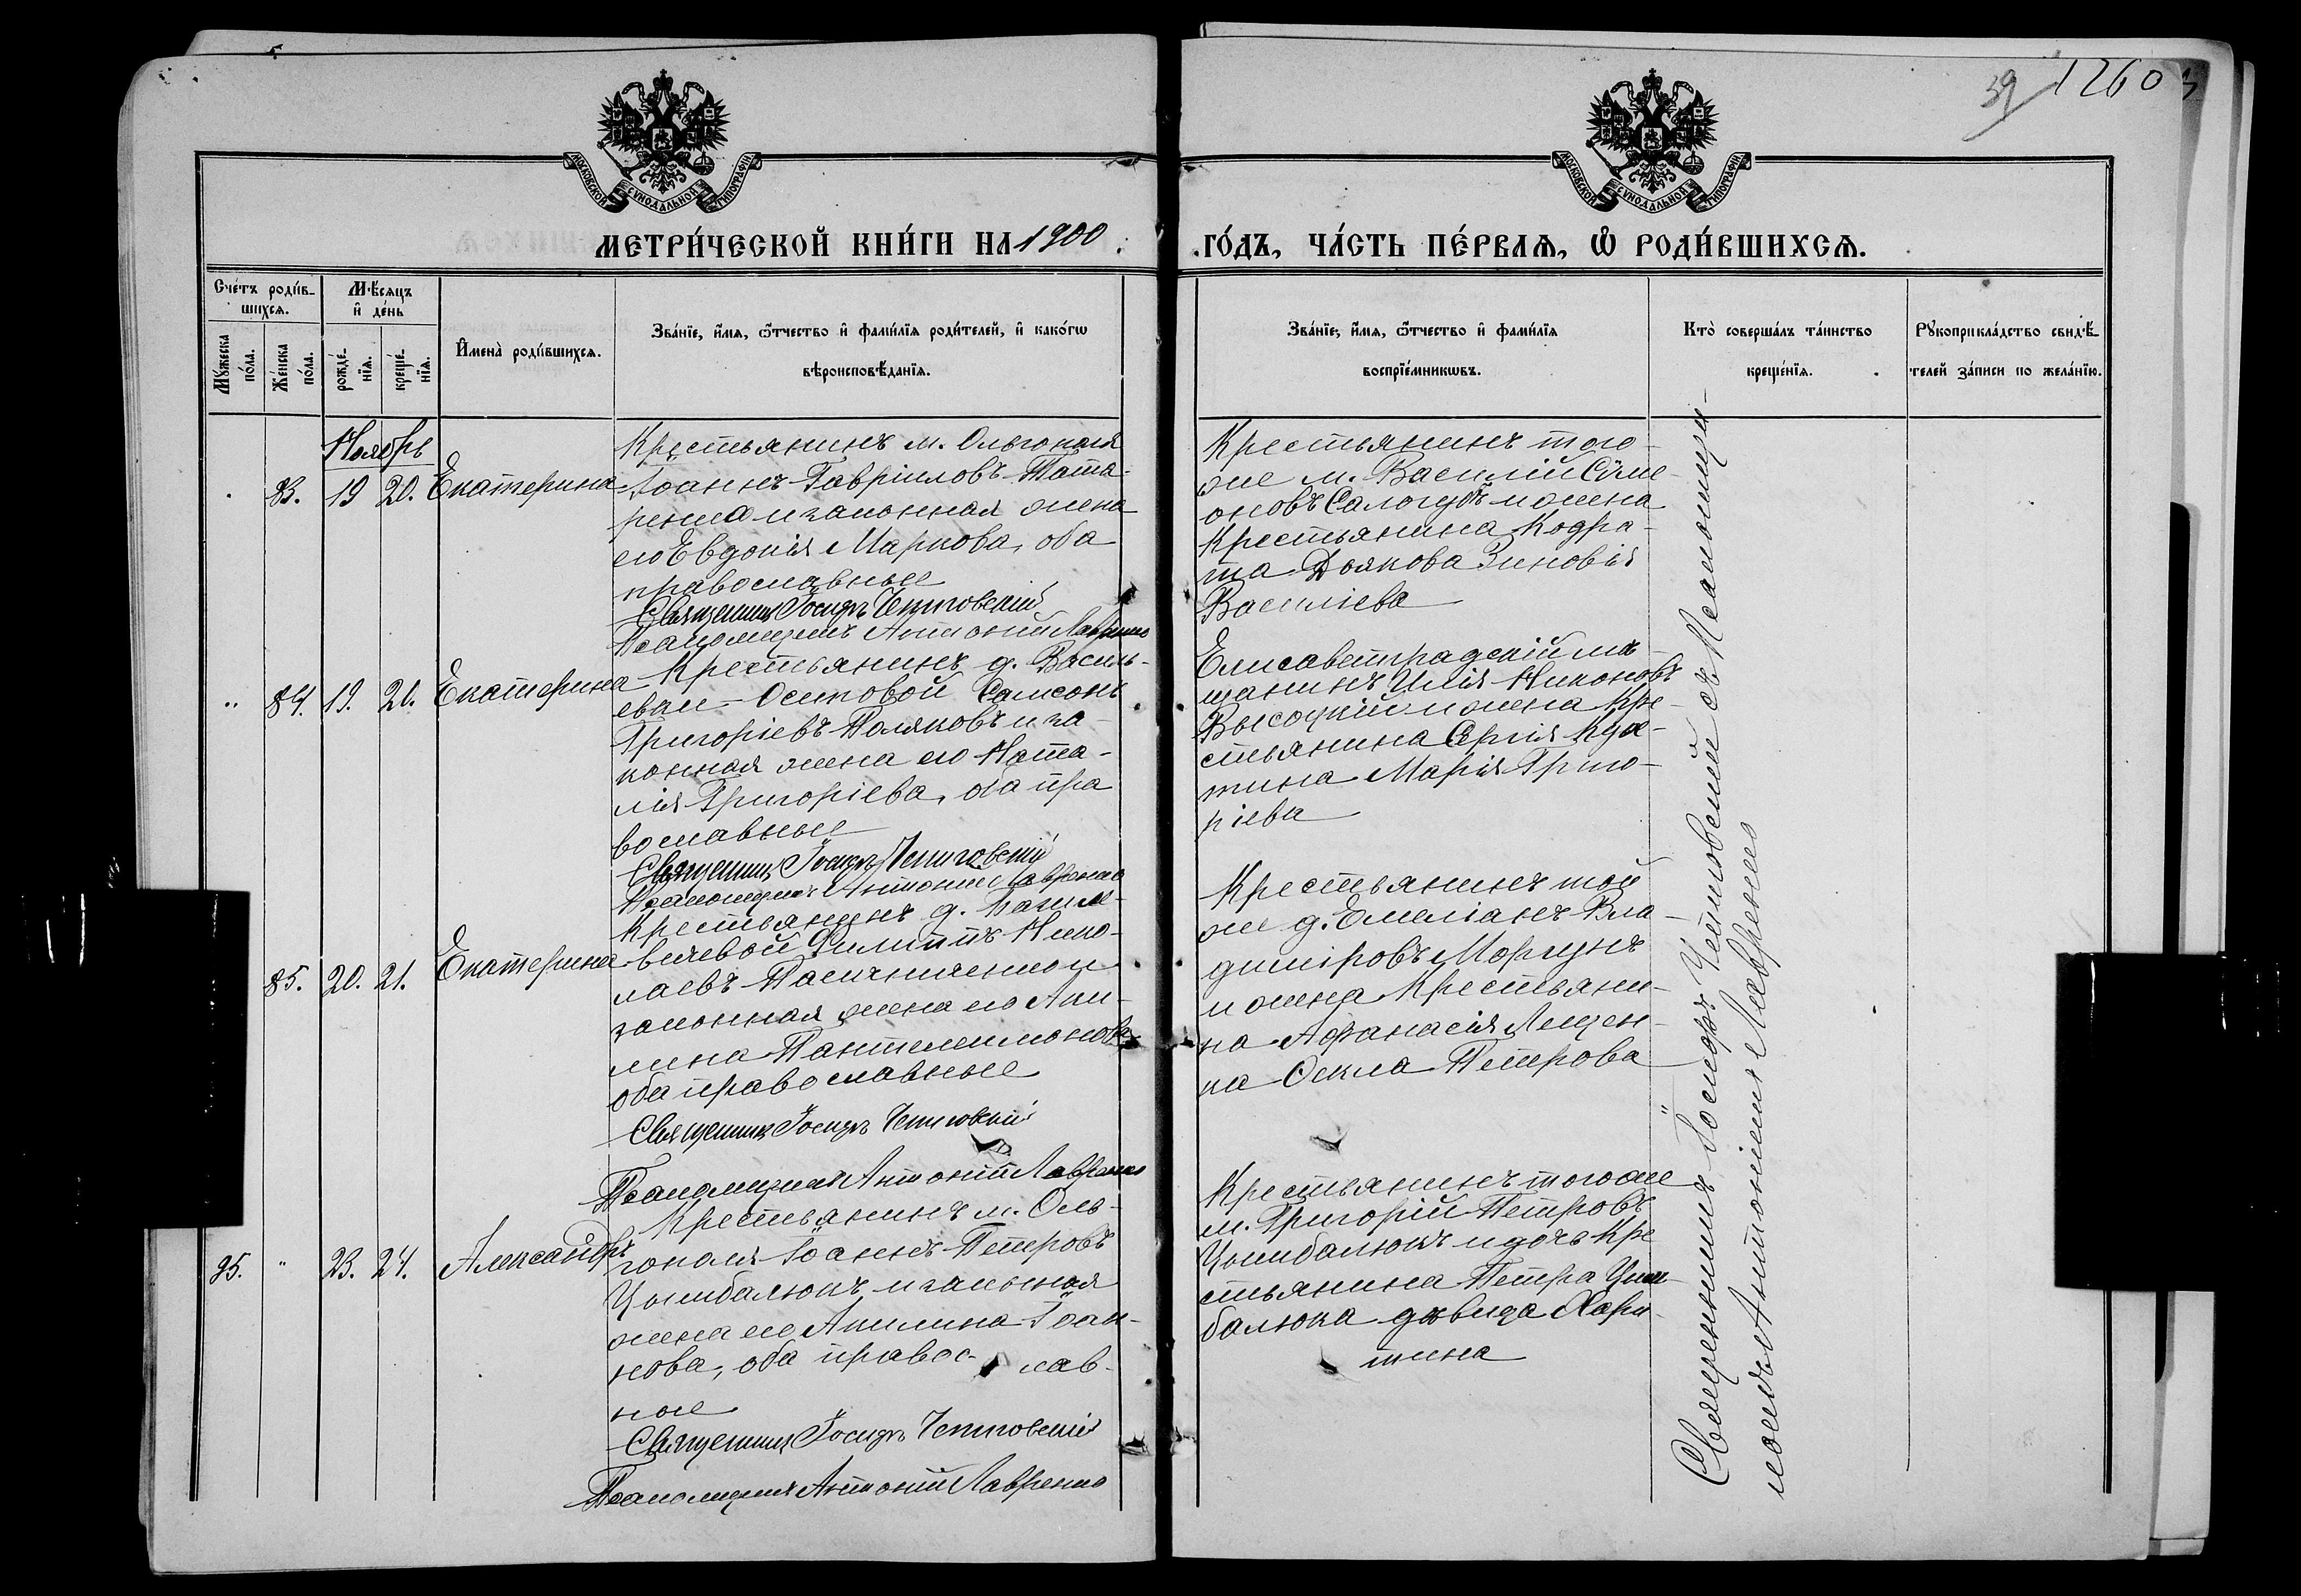 39 1260
МОСКОВСКОЙ СѴНОДАЛЬНОЙ ТИПОГРАФІИ
МОСКОВСКОЙ СѴНОДАЛЬНОЙ ТИПОГРАФІИ
МЕТРИ́ЧЕСКОЙ КНИ́ГИ НА 1900
ГО́ДЪ, ЧА́СТЬ ПЕ́РВАѦ, Ѡ РОДИ́ВШИХСѦ.
Сче́тъ роди́в-
шихсѧ.
Мѣ́сѧцъ
и де́нь
Мꙋ́жеска
по́ла.
Же́нска
по́ла.
рожде́-
нїѧ.
креще́-
нїѧ.
Имена̀ роди́вшихсѧ.
Зва́нїе, и́мѧ, ѻ́тчество и фами́лїѧ роди́телей, и како́гѡ
вѣроисповѣ́данїѧ.
Зва́нїе, и́мѧ, ѻ́тчество и фами́лїѧ
воспрїе́мникѡвъ.
Кто̀ соверша́лъ та́инство
креще́нїѧ.
Рꙋкоприкла́дство свидѣ́-
телей за́писи по жела́нїю.
Ноябрь
83. 19 20. Екатерина
Крестьянинъ м. Ольгополя
Іоаннъ Гавріиловъ Тата-
ренко и законная жена
его Евдокія Маркова, оба
православные
Священникъ Іосифъ Чепиговскій
Псаломщикъ Антоній Лавренко
Крестьянинъ того-
же м. Василій Симе-
оновъ Салогубъ и жена
Крестьянина Кодра-
та Дьякова Зиновія
Василіева
" 84. 19. 20. Екатерина
Крестьянинъ д. Василь-
евки-Осиповой Самсонъ
Григоріевъ Поляковъ и за-
конная жена его Ната-
лія Григоріева, оба пра
вославные
Священникъ Іосифъ Чепиговскій
Псаломщикъ Антоній Лавренко
Елисаветградскій мѣ-
щанинъ Илія Никоновъ
Высоцкій и жена Кре-
стьянина Сергія
Марія Григо-
ріева
85. 20. 21. Екатерина
Крестьянинъ д.
Филиппъ Нико-
лаевъ и
законная жена его Аки-
лина Пантелеимонова
оба православные
Священникъ Іосифъ Чепиговскій
Псаломщикъ Антоній Лавренко
Крестьянинъ той
же д. Емеліанъ Вла-
диміровъ Моргунъ
и жена Крестьяни-
на Афанасія Лещен-
ка Текла Петрова
95. " 23. 24. Александръ
Крестьянинъ м. Оль-
гополя Іоаннъ Петровъ
Цымбалюкъ и законная
жена его Акилина Іоан-
нова, оба правос-лав-
ные
Священникъ Іосифъ Чепиговскій
Псаломщикъ Антоній Лавренко
Крестьянинъ тогоже
м. Григорій Петровъ
Цымбалюкъ и дочь Кре
стьянина Петра Цым-
балюка дѣвица Хари-
тина
Священникъ Іосифъ Чепиговскій съ Псаломщи-
комъ Антоніемъ Лавренко